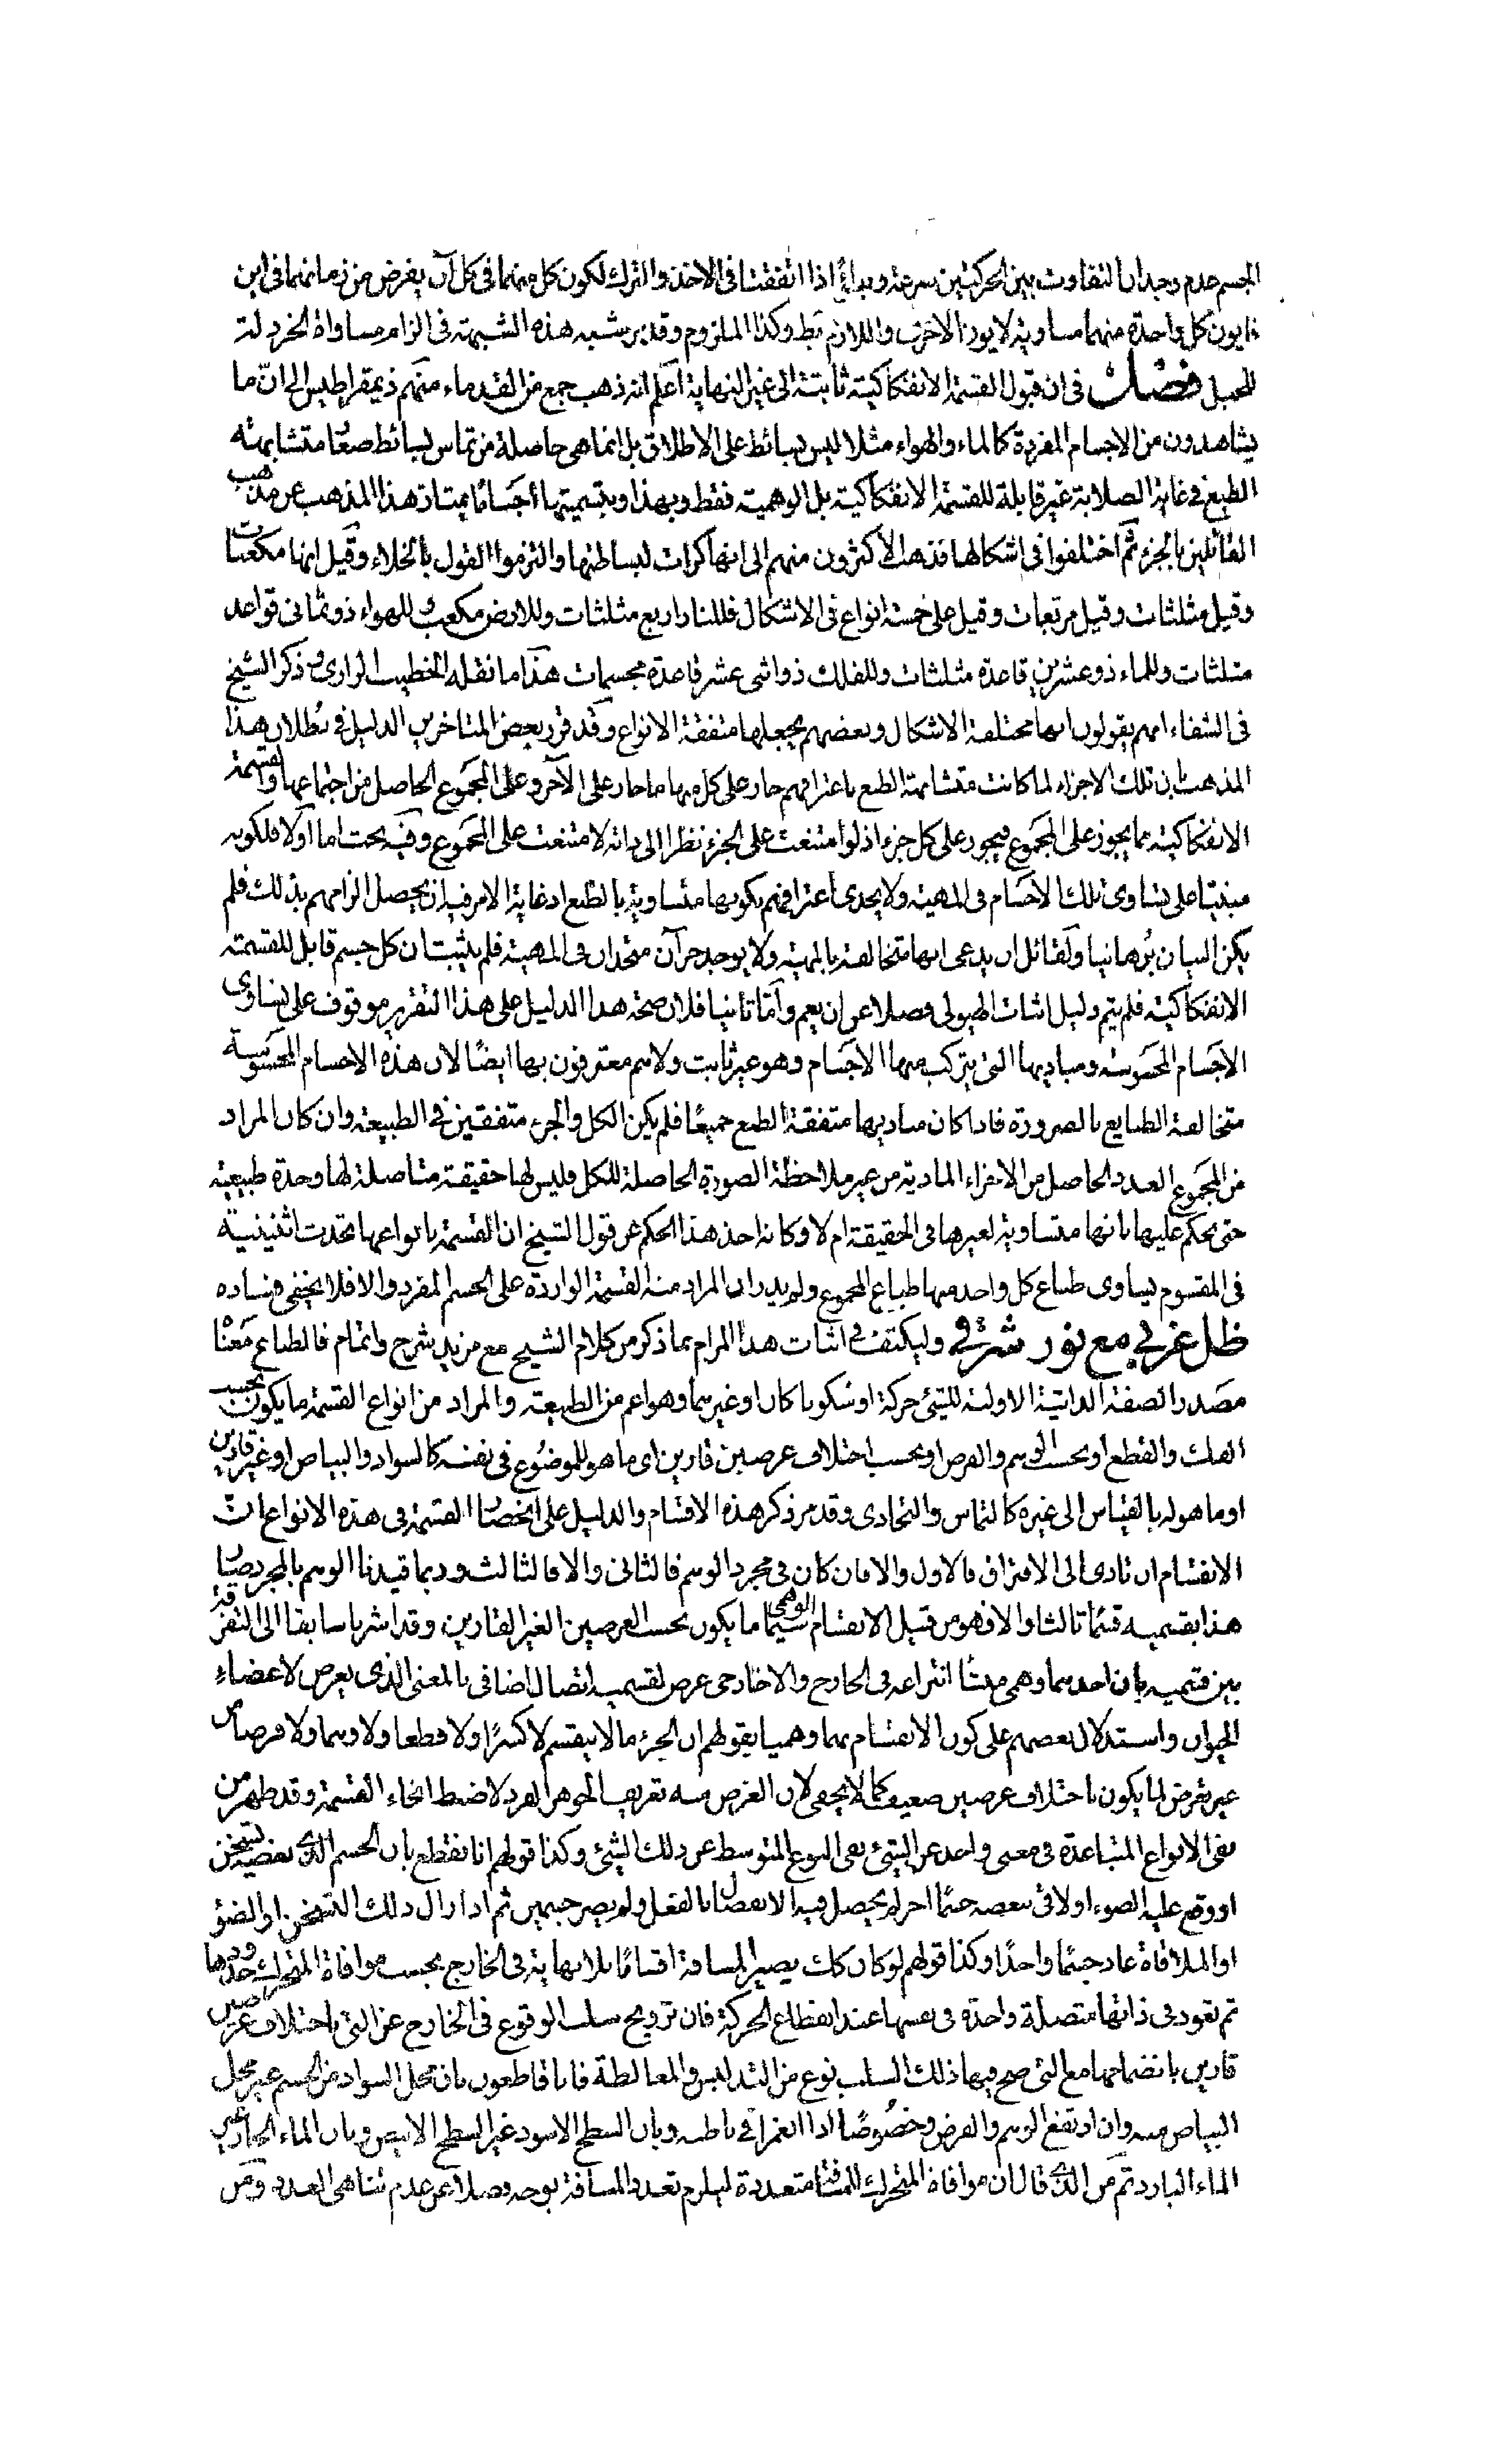 الجسم عدم وجدان التفاوت بين الحركتين سرعة وبطأً اذا اتفقتا فى الاخذ والترك لكون كل منهما فى كل آن يفرض من زمانهما فى اين
كل واحدة منهما مساوية الاخرى واللازم وكذا الملزوم وقد مر شبه هذه الشبهة فى الزام مساواة الخردلة
للجبل فصل فى ان قبول القسمة الانفكاكية ثابتة الى غير النهاية اعلم انه ذهب جمع من القدماء منهم ذيمقراطيس الى انّ ما
يشاهدون من الاجسام المفردة كالماء والهواء مثلا ليس بسائط على الاطلاق بل انما هى حاصلة من تماس بسائط صغار متشابهة
الطبع فى غاية الصلابة غير قابلة للقسمة الانفكاكية بل الوهمية فقط وبهذا وبتسميتها اجسامًا يمتاز هذا المذهب عن مذهب
القائلين بالجزء ثم اختلفوا فى اشكالها فذهب الاكثرون منهم الى انها كرات لبساطتها والتزموا القول بالخلاء وقيل انها مكعبات
وقيل مثلثات وقيل مربعات وقيل على خمسة انواع فى الاشكال فللنار اربع مثلثات وللارض مكعب وللهواء ذو ثمانى قواعد
مثلثات وللماء ذو عشرين قاعدة مثلثات وللفلك ذو اثنى عشر قاعدة مخمسات هذا ما نقله الخطيب الرازى وذكر الشيخ
فى الشفاء انهم يقولون انها مختلفة الاشكال وبعضهم يجعلها متفقة الانواع وقد قرر بعض المتاخرين الدليل فى بطلان هذا
المذهب بان تلك الاجزاء لما كانت متشابهة الطبع باعترافهم جاز على كل منها ما جاز على الآخر وعلى المجموع الحاصل من اجتماعها والقسمة
الانفكاكية مما يجوز على المجموع فيجوز على كل جزء اذ لو امتنعت على الجزء نظرا الى ذاته لامتنعت على المجموع وفيه بحث اما اولا فلكونه
مبنيا على تساوى تلك الاجسام فى المهية ولا يجدى اعترافهم بكونها متساوية بالطبع اذ غاية الامر فيه ان يحصل الزامهم بذلك فلم
يكن البيان برهانيا ولقائل ان يدعى انها متخالفة بالمهية ولا يوجد جزآن متحدان فى المهية فلم يثبت ان كل جسم قابل للقسمة
الانفكاكية فلم يتم دليل اثبات الهيولى فضلا عن ان يعم وامّا ثانيا فلان صحة هذا الدليل على هذا التقرير موقوف على تساوى
الاجسام المحسوسة ومباديها التى يتركب منها الاجسام وهو غير ثابت ولا هم معترفون بها ايضًا لان هذه الاجسام المحسوسة
متخالفة الطبايع بالضرورة فاذا كان مباديها متفقة الطبع جميعًا فلم يكن الكل والجزء متفقين فى الطبيعة وان كان المراد
من المجموع العدد الحاصل من الاجزاء المادية من غير ملاحظة الصورة الحاصلة للكل فليس لها حقيقة متاصلة لها وحدة طبيعية
حتى يحكم عليها بانها متساوية لغيرها فى الحقيقة ام لا وكانه اخذ هذا الحكم عن قول الشيخ ان القسمة بانواعها تحدث اثنينية
فى المقسوم يساوى طباع كل واحد منها طباع المجموع ولم يدر ان المراد منه القسمة الواردة على الجسم المفرد والا فلا يخفى فساده
ظل غربى مع نور شرقى وليكتف فى اثبات هذا المرام بما ذكر من كلام الشيخ مع مزيد شرح واتمام فالطباع معناه
مصدر الصفة الذاتية الاولية للشئ حركة او سكونا كان او غيرهما وهو اعم من الطبيعة والمراد من انواع القسمة ما يكون بحسب
الفك والقطع او بحسب الوهم والفرض او بحسب اختلاف عرضين قارين اى ما هو للموضوع فى نفسه كالسواد والبياض او غير قارين
او ما هو له بالقياس الى غيره كالتماس والتحاذى وقد مر ذكر هذه الاقسام والدليل على انحصار القسمة فى هذه الانواع انّ
الانقسام ان تادى الى الافتراق فالاول والا فان كان فى مجرد الوهم فالثانى والا فالثالث وربما قيدنا الوهم بالمجرد صار
هذا بقسميه قسمًا ثالثا والا فهو من قبيل الانقسام الوهمى سيما ما يكون بحسب العرضين الغير القارين وقد اشرنا سابقا الى التفرقة
بين قسميه بان احدهما وهمى منشأ انتزاعه فى الخارج والا خارجى عرض لقسميه اتصال اضافى بالمعنى الذى يعرض لاعضاء
الحيوان واستدلال بعضهم على كون الانقسام بهما وهميا بقولهم ان الجزء ما لا ينقسم لا كسرًا ولا قطعا ولا وهما ولا فرضا من
غير تعرض لما يكون باختلاف عرضين ضعيف كما لا يخفى لان الغرض منه تعريف الجوهر الفرد لا ضبط انحاء القسمة وقد ظهر من
نفى الانواع المتباعدة فى معنى واحد عن الشئ نفى النوع المتوسط عن ذلك الشئ وكذا قولهم انا نقطع بان الجسم الذى بعضه تسخن
او وقع عليه الضوء او لاقى ببعضه جسمًا اخر لم يحصل فيه الانفصال بالفعل ولم يصر جسمين ثم اذا زال ذلك التسخن او الضوء
او الملاقاة عاد جسمًا واحدًا وكذا قولهم لو كان كك يصير المسافة اقسامًا بلا نهاية فى الخارج بحسب موافاة المتحرك حدودها
ثم تعود فى ذاتها متصلة واحدة فى نفسها عند انقطاع الحركة فان ترويج سلب الوقوع فى الخارج عن التى باختلاف عرضين
قارين بانضمامها مع التى صح فيها ذلك السلب نوع من التدليس والمغالطة فانا قاطعون بان محل السواد من الجسم غير محل
البياض منه وان ارتفع الوهم والفرض وخصوصًا اذا انغمرا فى باطنه وبان السطح الاسود غير السطح الابيض وبان الماء الحار غير
الماء البارد ثم من الذى قال ان موافاة المتحرك للمسافة متعددة ليلزم تعدد المسافة بوجه فضلا عن عدم تناهى العدد ومن